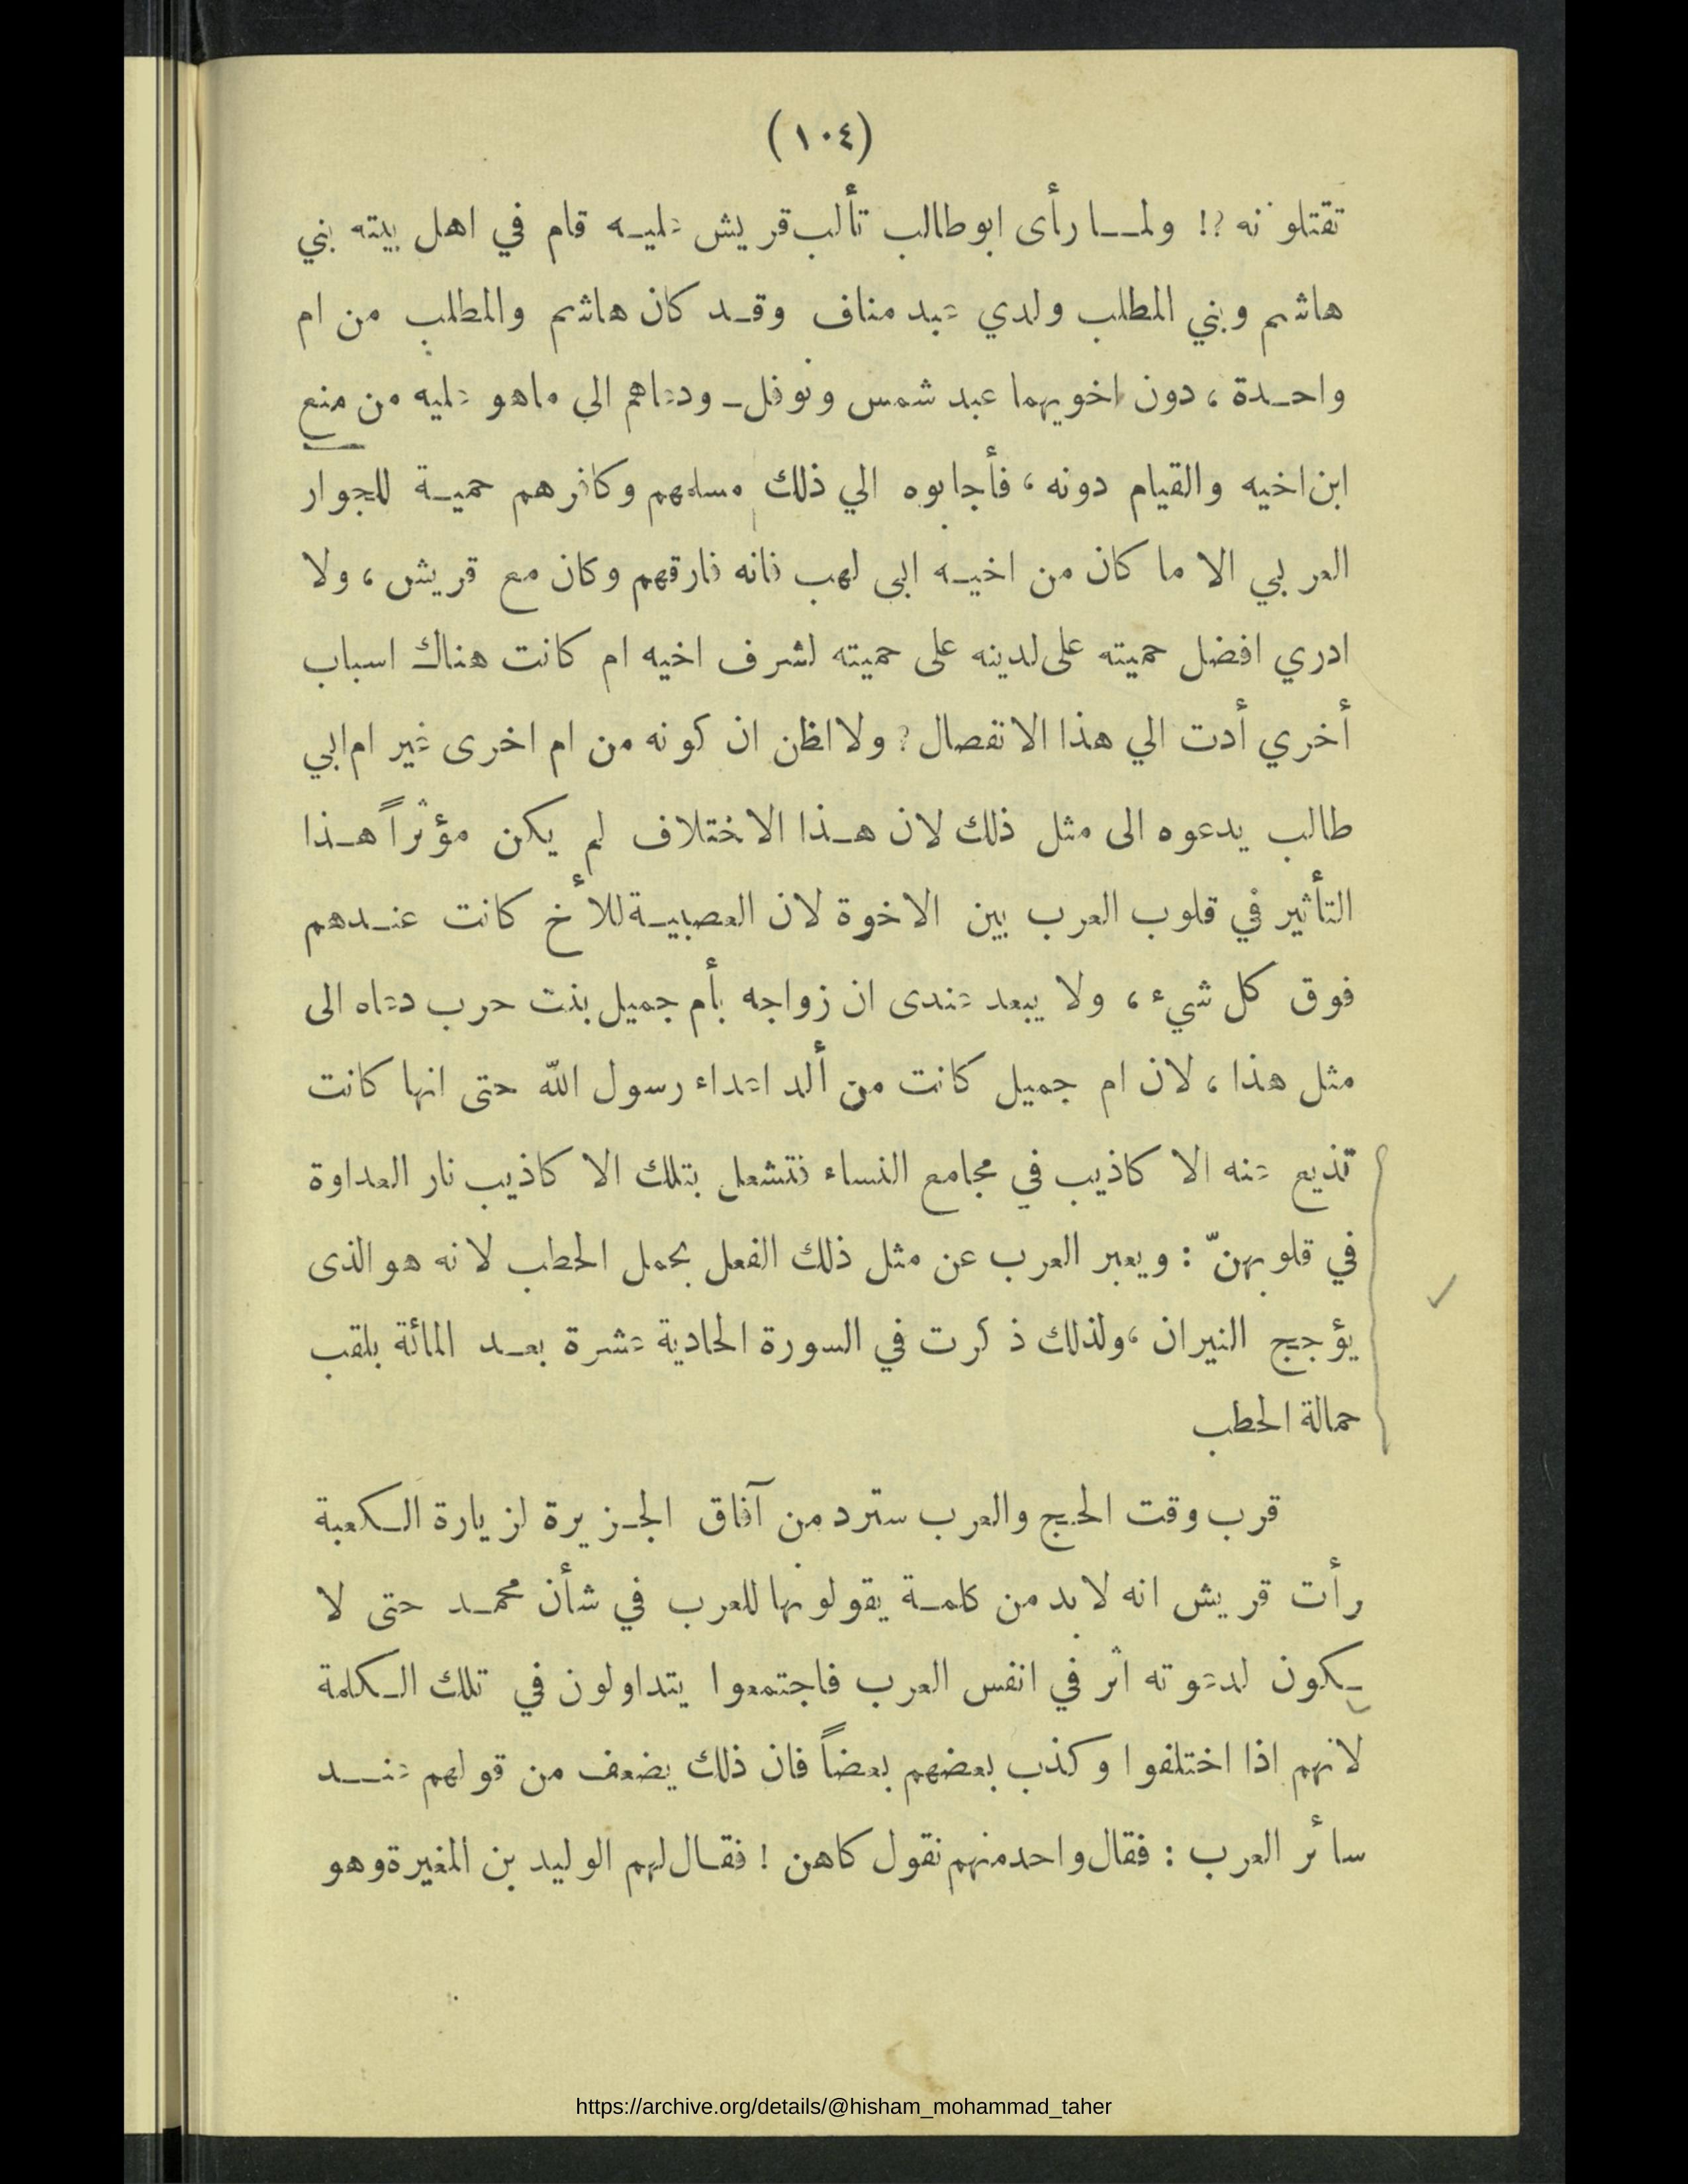 (١٠٤)
تقتلونه ؟! ولمـا رأى ابوطالب تألب قريش عليـه قام في اهل بيته بني
هاشم وبني المطلب ولدي عبد مناف وقـد كان هاشم والمطلب من ام
واحـدة ، دون اخويهما عبد شمس ونوفل ـ ودعاهم الى ماهو عليه من منع
ابن اخيه والقيام دونه ، فأجابوه الي ذلك مسلمهم وكافرهم حميـة للجوار
العربي الا ما كان من اخيـه ابى لهب فانه فارقهم وكان مع قريش ، ولا
ادري افضل حميته على لدينه على حميته لشرف اخيه ام كانت هناك اسباب
أخري أدت الي هذا الانفصال ؟ ولا اظن ان كونه من ام اخرى غير ام ابي
طالب يدعوه الى مثل ذلك لان هـذا الاختلاف لم يكن مؤثراً هـذا
التأثير في قلوب العرب بين الاخوة لان العصبيـة للأخ كانت عنـدهم
فوق كل شيء ، ولا يبعد عندى ان زواجه بأم جميل بنت حرب دعاه الى
مثل هذا ، لان ام جميل كانت من ألد اعداء رسول الله حتى انها كانت
تذيع عنه الاكاذيب في مجامع النساء فتشعل بتلك الاكاذيب نار العداوة
في قلوبهنّ : ويعبر العرب عن مثل ذلك الفعل بحمل الحطب لانه هو الذى
يؤجج النيران ، ولذلك ذكرت في السورة الحادية عشرة بعـد المائة بلقب
حمالة الحطب
قرب وقت الحج والعرب سترد من آفاق الجـزيرة لزيارة الـكعبة
رأت قريش انه لا بد من كلمـة يقولونها للعرب في شأن محمـد حتى لا
يـكون لدعوته اثر في انفس العرب فاجتمعوا يتداولون في تلك الـكلمة
لانهم اذا اختلفوا وكذب بعضهم بعضاً فان ذلك يضعف من قولهم عنـد
سائر العرب : فقال واحد منهم نقول كاهن ! فقـال لهم الوليد بن المغيرة وهو
https://archive.org/details/@hisham_mohammad_taher